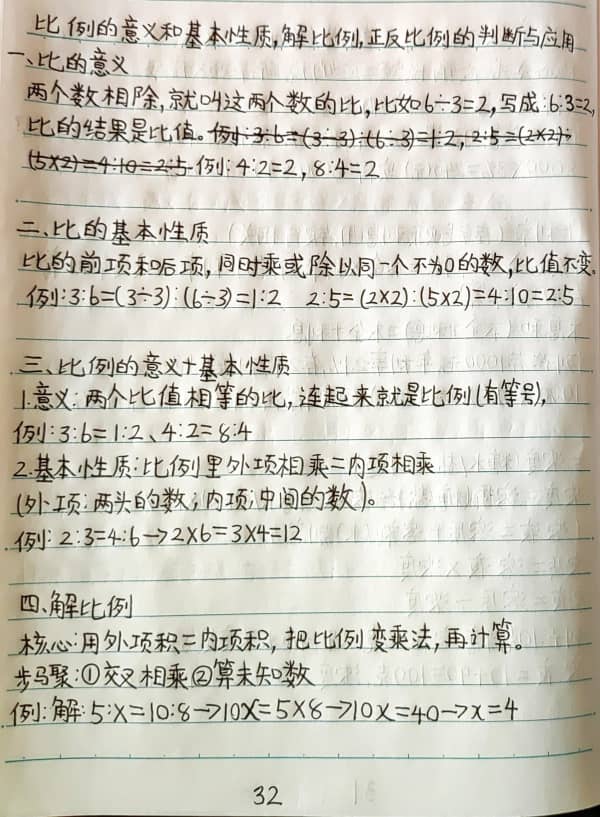 比例的意义和基本性质,解比例,正反比例的判断与应用
一、比的意义
两个数相除,就叫这两个数的比,比如6÷3=2,写成:6:3=2,
比的结果是比值。例:3:6=(3÷3):(6÷3)=1:2,2:5=(2×2):
(5×2)=4:10=2:5.例:4:2=2,8:4=2
二、比的基本性质
比的前项和后项,同时乘或除以同一个不为0的数,比值不变。
例:3:6=(3÷3):(6÷3)=1:2 2:5=(2×2):(5×2)=4:10=2:5
三、比例的意义+基本性质
1.意义:两个比值相等的比,连起来就是比例(有等号),
例:3:6=1:2、4:2=8:4
2.基本性质:比例里外项相乘=内项相乘
(外项:两头的数;内项:中间的数)。
例:2:3=4:6→2×6=3×4=12
四、解比例
核心:用外项积=内项积,把比例变乘法,再计算。
步骤:①交叉相乘②算未知数
例:解:5:x=10:8→10x=5×8→10x=40→x=4
32